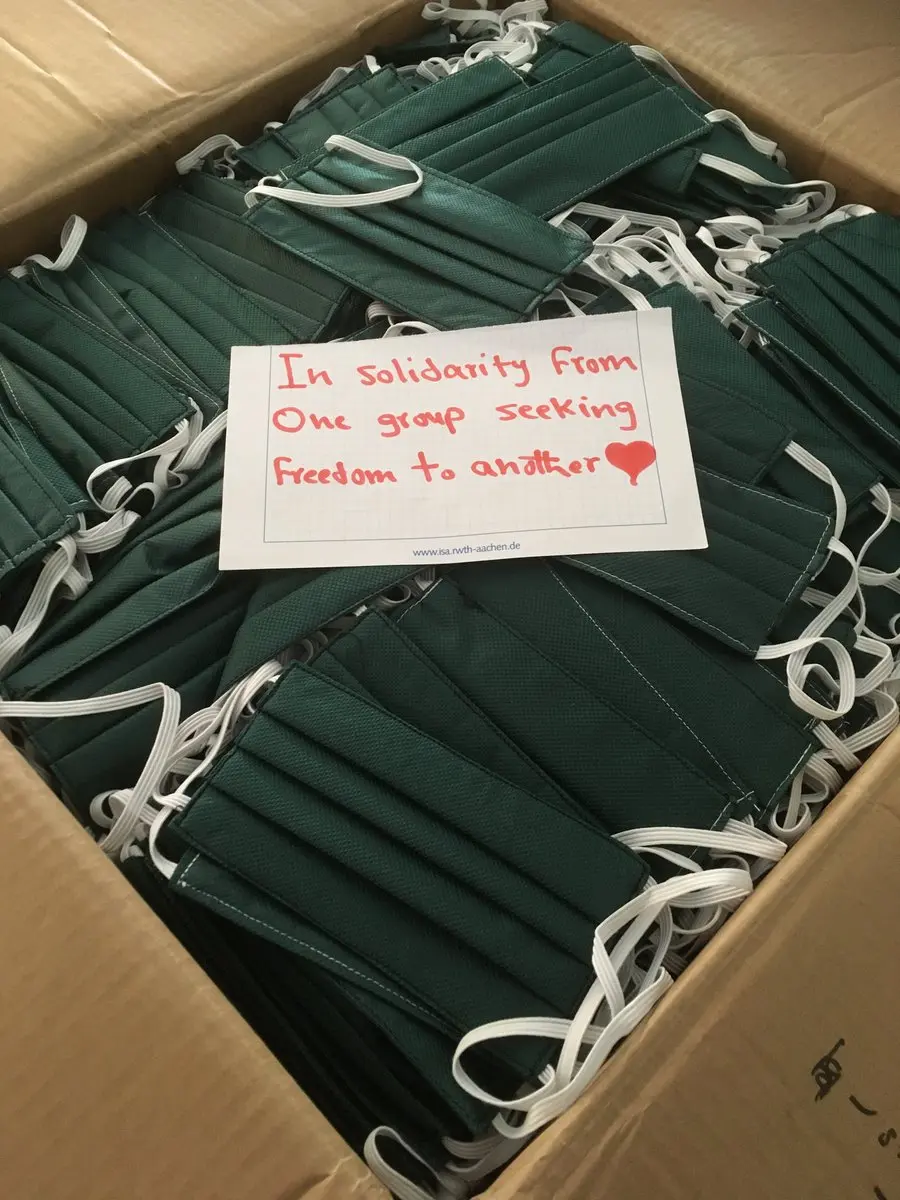 In solidarity from
One group seeking
freedom to another ♥
www.isa.rwth-aachen.de